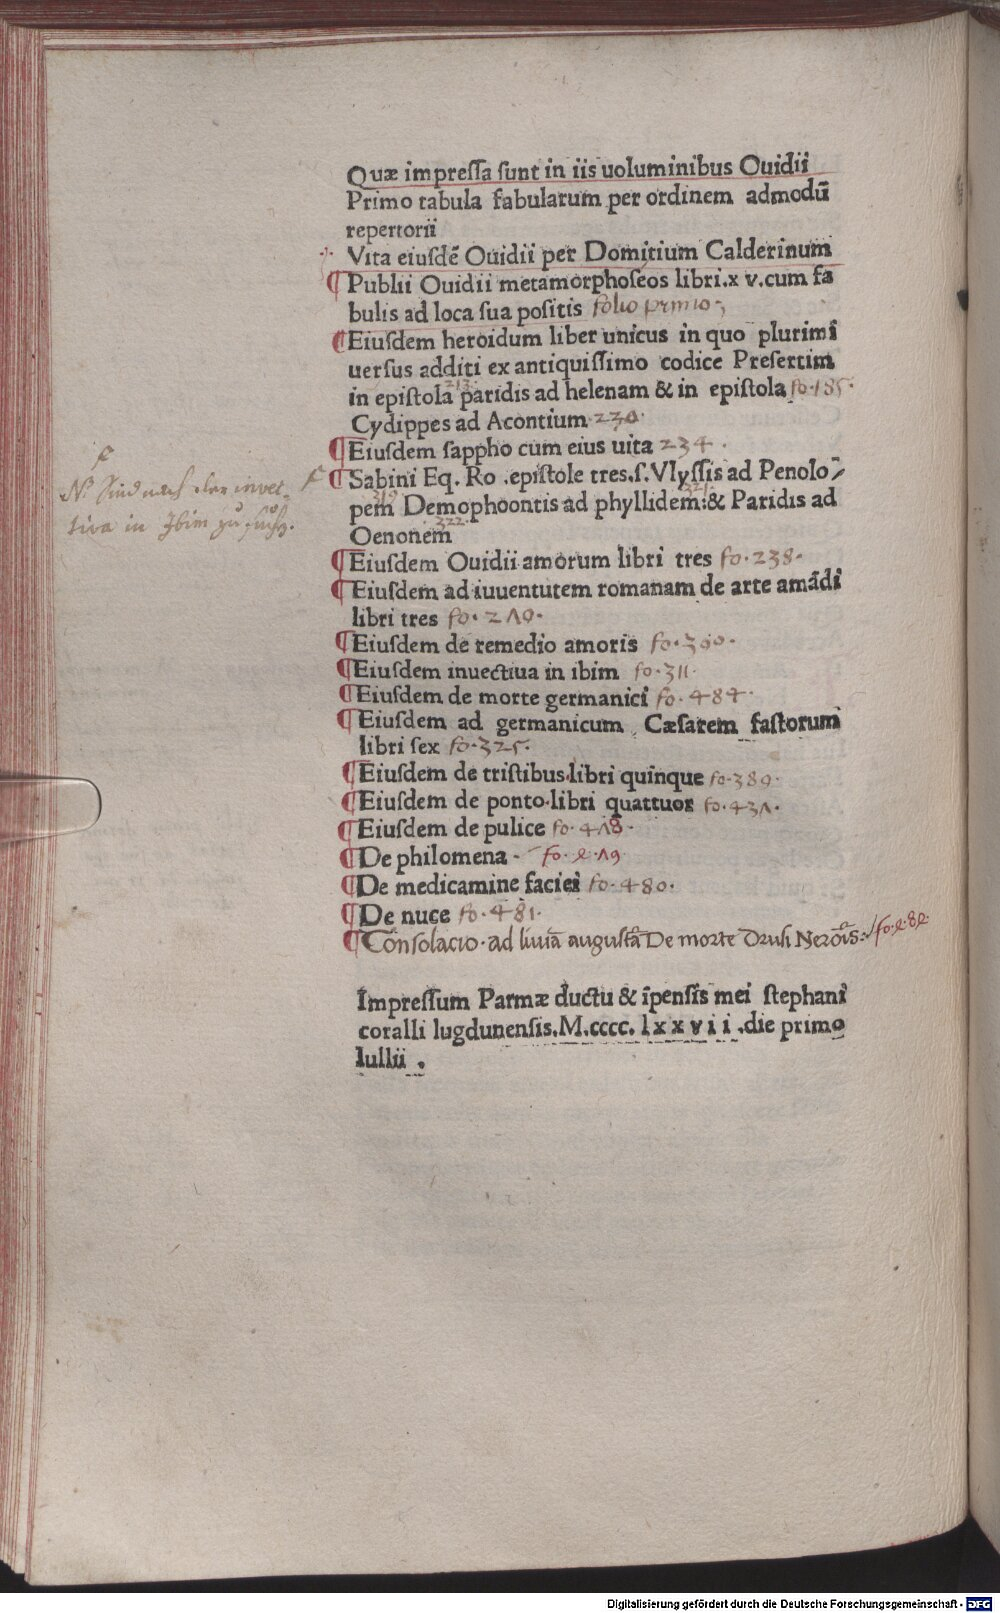 Quæ impreſſa ſunt in iis uoluminibus Ouidii
Primo tabula fabularum per ordinem admodū
repertorii
Vita eiuſdē Ouidii per Domitium Calderinum
¶Publii Ouidii metamorphoſeos libri.x v.cum fa
bulis ad loca ſua poſitis folio primo
¶Eiuſdem heroidum liber unicus in quo plurimi
uerſus additi ex antiquiſſimo codice Preſertim
213
in epiſtola paridis ad helenam & in epiſtola fo·185·
Cydippes ad Acontium 230·
¶Eiuſdem ſappho cum eius uita 234 ·
¶Sabini Eq. Ro .epiſtole tres.ſ.Vlyſſis ad Penolo
319 321
pem Demophoontis ad phyllidem:& Paridis ad
322
Oenonem
N. Sind nach der invec-
tiva in Ibim zu
¶Eiuſdem Ouidii amorum libri tres fo·238·
¶Eiuſdem ad iuuentutem romanam de arte amādi
libri tres fo·
¶Eiuſdem de remedio amoris fo·
¶Eiuſdem inuectiua in ibim fo·311·
¶Eiuſdem de morte germanici fo·484·
¶Eiuſdem ad germanicum Cæſarem faſtorum
libri ſex fo·325·
¶Eiuſdem de triſtibus.libri quinque fo·389·
¶Eiuſdem de ponto.libri quattuor fo·431·
¶Eiuſdem de pulice fo·4Λ8·
¶De philomena fo·
¶De medicamine faciei fo·480·
¶De nuce fo·481·
¶Conſolacio·ad liuiā auguſtā De morte Druſi Neroīs
Impreſſum Parmæ ductu & īpenſis mei ſtephani
coralli lugdunenſis.M.cccc.lxxvii.die primo
Iullii .
Digitalisierung gefördert durch die Deutsche Forschungsgemeinschaft - DFG